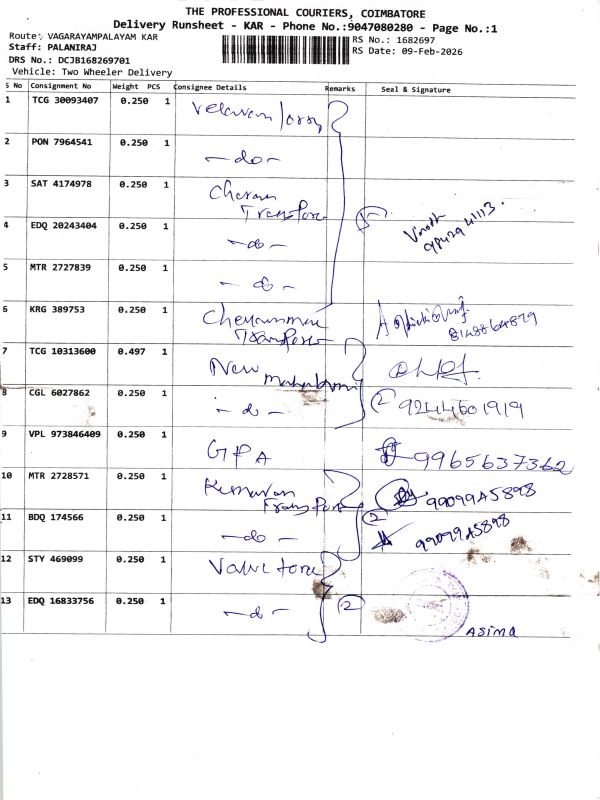 THE PROFESSIONAL COURIERS, COIMBATORE
Delivery Runsheet - KAR - Phone No.:9047080280 - Page No.:1
Route: VAGARAYAMPALAYAM KAR
RS No.: 1682697
Staff: PALANIRAJ
RS Date: 09-Feb-2026
DRS No.: DCJB168269701
Vehicle: Two Wheeler Delivery
S No Consignment No Weight PCS Consignee Details Remarks Seal & Signature
1 TCG 30093407 0.250 1
2 PON 7964541 0.250 1 -do-
3 SAT 4174978 0.250 1 Cheran
Transport
4 EDQ 20243404 0.250 1 -do-
Vinoth
5 MTR 2727839 0.250 1 -do-
6 KRG 389753 0.250 1
Transport 8148864879
7 TCG 10313600 0.497 1 New
8 CGL 6027862 0.250 1 -do- 2 9244601919
9 VPL 973846409 0.250 1 GPA 9965637362
10 MTR 2728571 0.250 1 Kumaran
Transport 99099A5898
11 BDQ 174566 0.250 1 -do- 2 99099A5898
12 STY 469099 0.250 1
13 EDQ 16833756 0.250 1 -do- 2
Asima